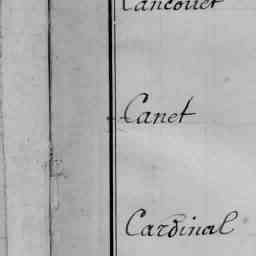 Cancouet
Canet
Cardinal